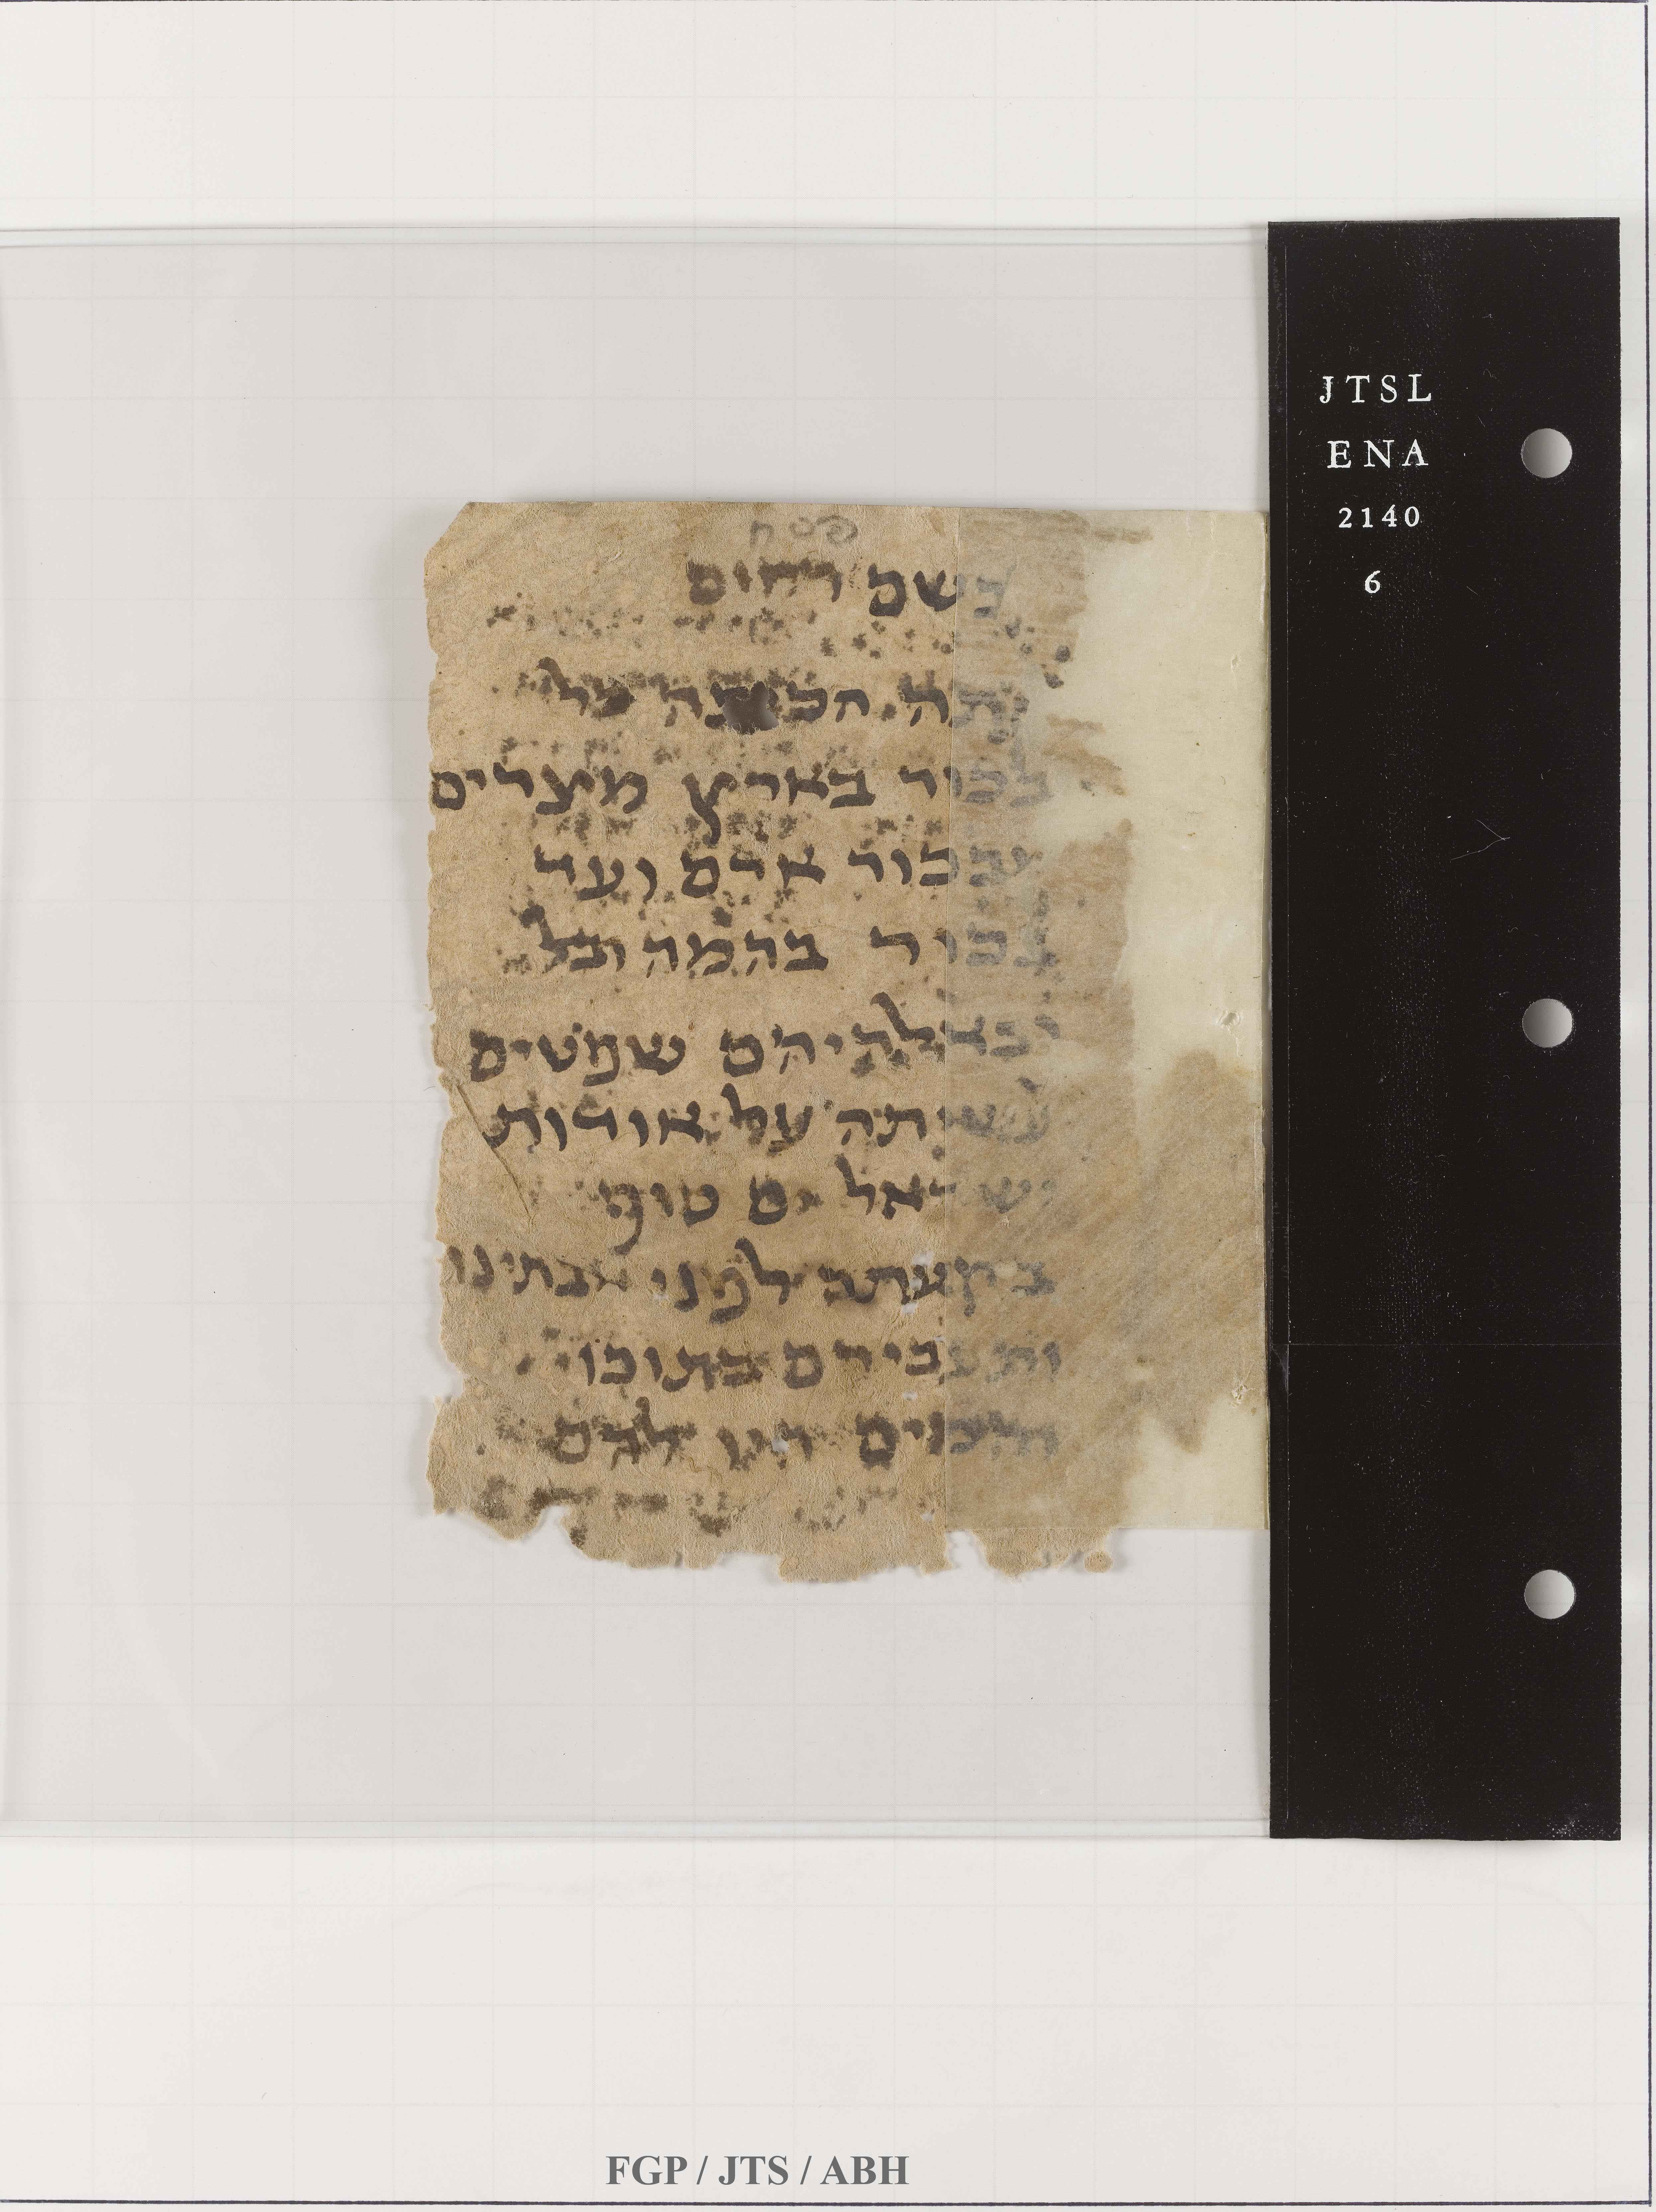 פסח
בשמ רחום
אתה הכיתה כל
בכור בארץ מצרים
מבכור אדם ועד
בכור בהמה ובל
ובאלהיהם שפטים
עשיתה על אודות
ישראל ים סוף
בקעתה לפני אבתינו
והעבירם בתוכו
המים היו להם
JTSL
ENA
2140
6
FGP / JTS / ABH